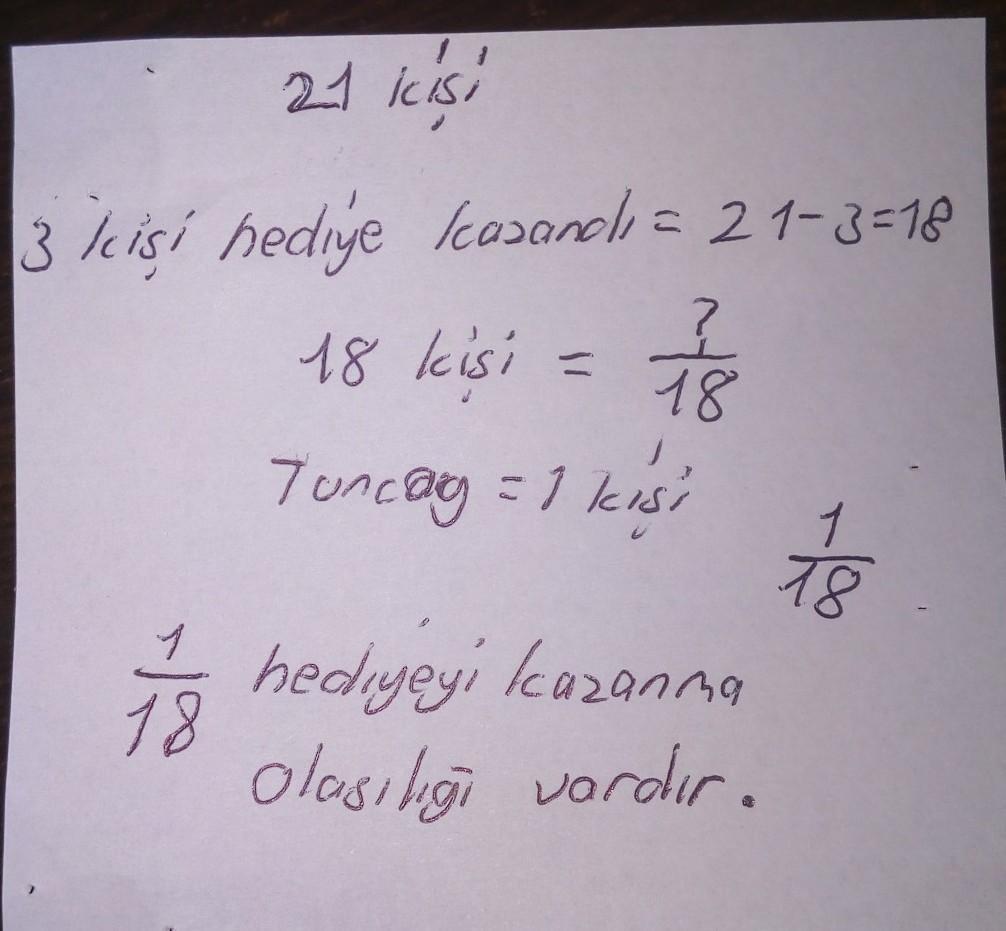 21 kişi
3 kişi hediye kazandı = 21-3=18
18 kişi = ?/18
Tuncay = 1 kişi
1/18
1/18 hediyeyi kazanma
olasılığı vardır.